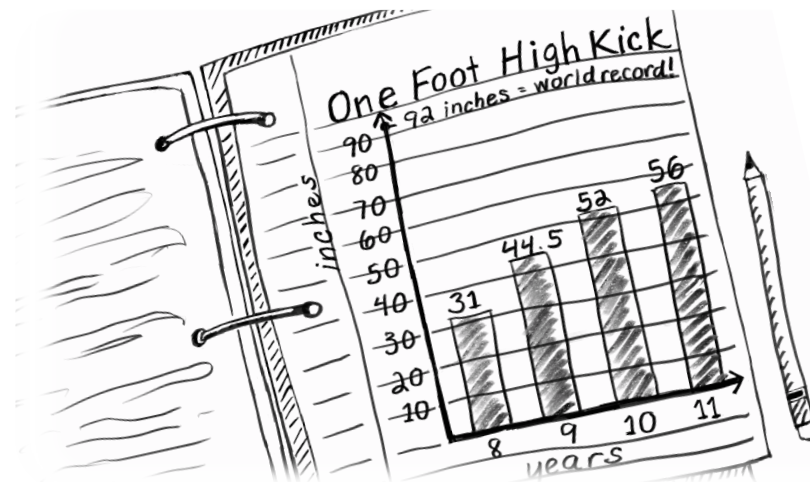 One Foot High Kick
92 inches = world record!
90
80
70
60
50
40
30
20
10
inches
31
44.5
52
56
8
9
10
11
years